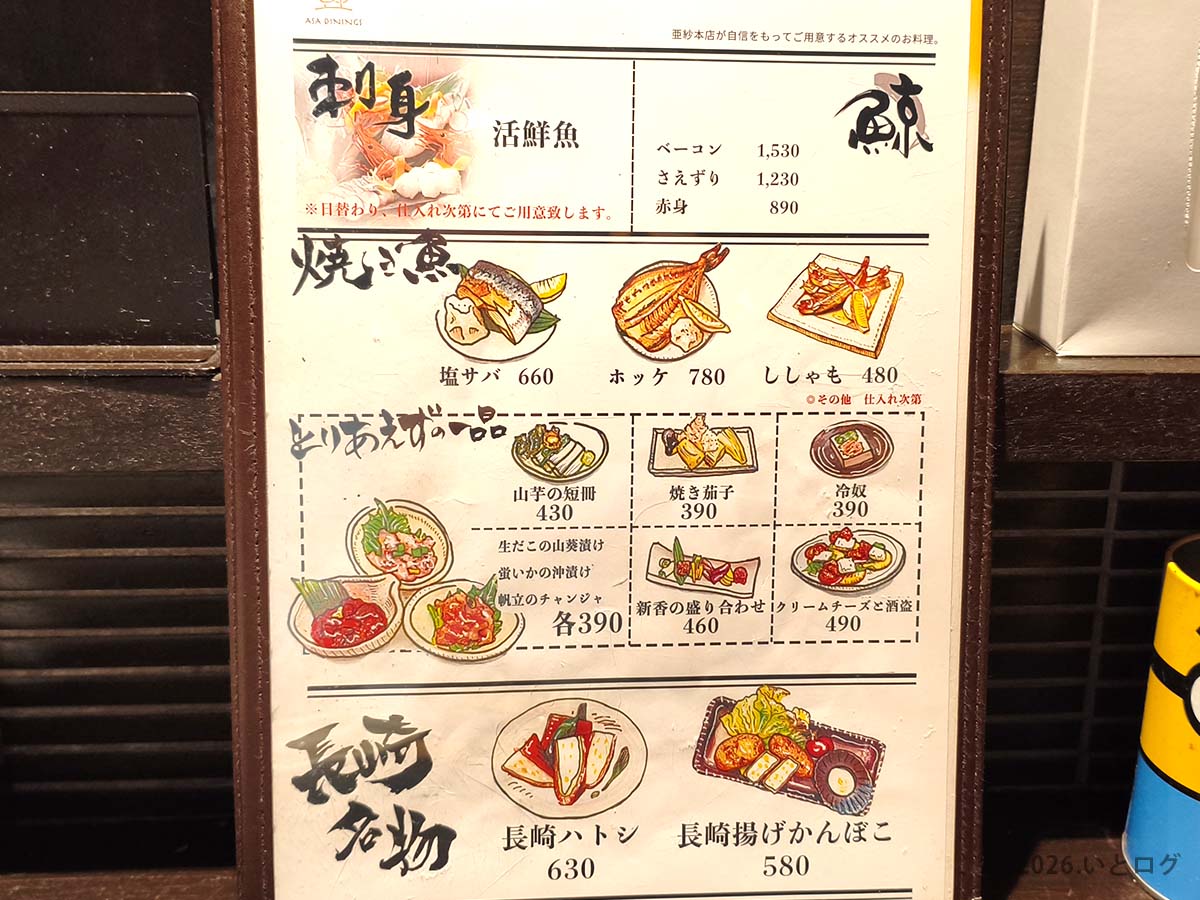 ASA DININGS
亜紗本店が自信をもってご用意するオススメのお料理。
刺身
活鮮魚
※日替わり、仕入れ次第にてご用意致します。
鯨
ベーコン 1,530
さえずり 1,230
赤身 890
焼き魚
塩サバ 660
ホッケ 780
ししゃも 480
◎その他 仕入れ次第
とりあえずの一品
山芋の短冊
430
焼き茄子
390
冷奴
390
生だこの山葵漬け
蛍いかの沖漬け
帆立のチャンジャ
各390
新香の盛り合わせ
460
クリームチーズと酒盗
490
長崎名物
長崎ハトシ
630
長崎揚げかんぼこ
580
2026.いとログ